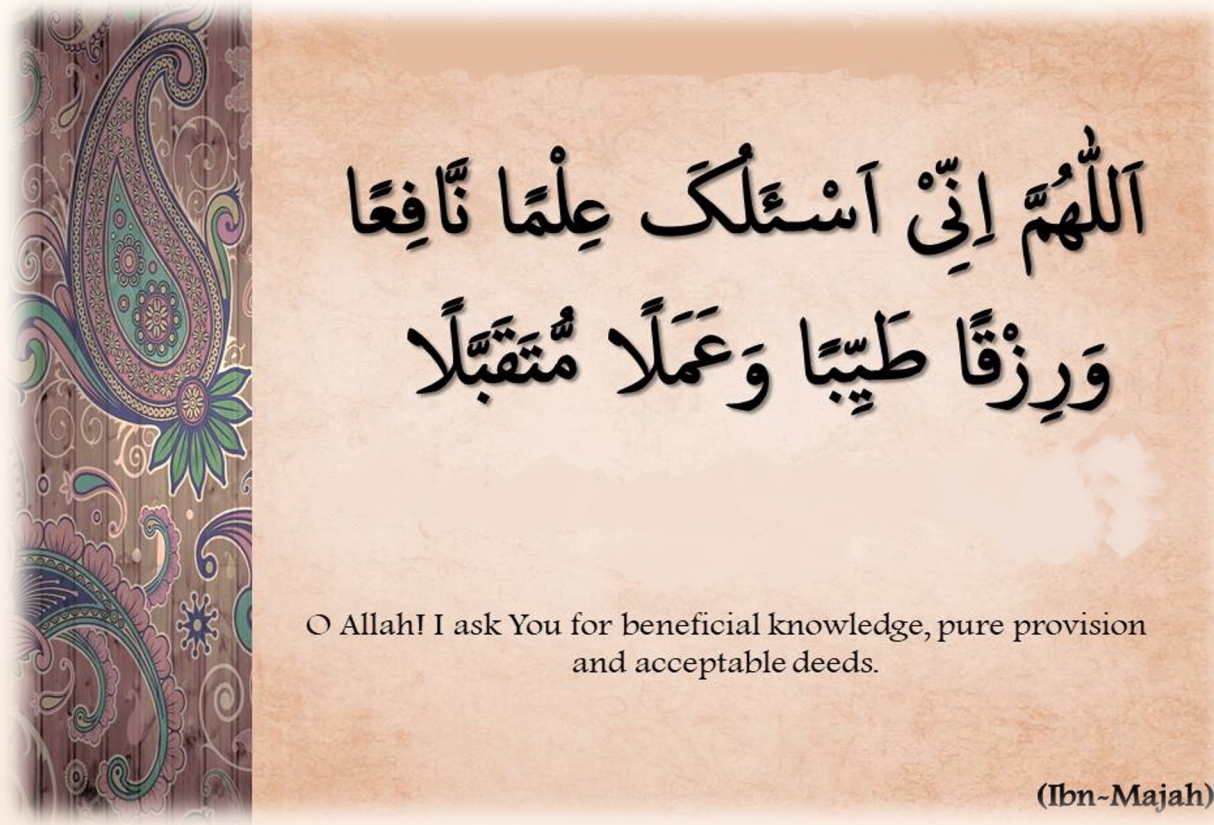 اَللّٰهُمَّ اِنِّیْ اَسْئَلُکَ عِلْمًا نَّافِعًا
وَرِزْقًا طَیِّبًا وَعَمَلًا مُّتَقَبَّلًا
O Allah! I ask You for beneficial knowledge, pure provision
and acceptable deeds.
(Ibn-Majah)